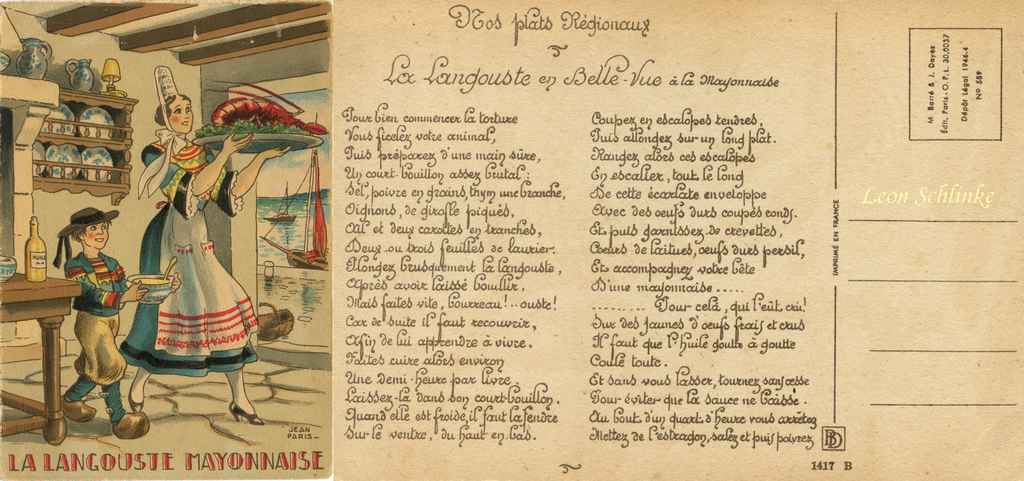 HUILE
JEAN
PARIS-
LA LANGOUSTE MAYONNAISE
Nos plats Régionaux
La Langouste en Belle-Vue à la Mayonnaise
Pour bien commencer la torture
Vous ficelez votre animal,
Puis préparez d'une main sûre,
Un court-bouillon assez brutal:
Sel, poivre en grains, thym une branche,
Oignons, de girofle piqués,
Ail et deux carottes en tranches,
Deux ou trois feuilles de laurier.
Plongez brusquement la langouste,
Après avoir laissé bouillir.
Mais faites vite, bourreau!.. ouste!
Car de suite il faut recouvrir,
Afin de lui apprendre à vivre.
Faites cuire alors environ
Une demi-heure par livre
Laissez-la dans son court-bouillon.
Quand elle est froide, il faut la fendre
Sur le ventre, du haut en bas.
Coupez en escalopes tendres,
Puis allongez sur un long plat.
Rangez alors ces escalopes
En escalier, tout le long
De cette écarlate enveloppe
Avec des oeufs durs coupés ronds.
Et puis garnissez de crevettes,
Coeurs de laitues, oeufs durs persil,
Et accompagnez votre bête
D'une mayonnaise .....
....... Pour celà, qui l'eût cru!
Sur des jaunes d'oeufs frais et crus
Il faut que l'huile goutte à goutte
Coule toute.
Et sans vous lasser, tournez sans cesse
Pour éviter que la sauce ne baisse.
Au bout d'un quart d'heure vous arrêtez
Mettez de l'estragon, salez et puis poivrez
BD
1417 B
IMPRIMÉ EN FRANCE
M. Barré & J. Dayez
Édit. Paris - O.P.L. 30.0037
Dépôt Légal 1946-4
N° 589
Leon Schlinke